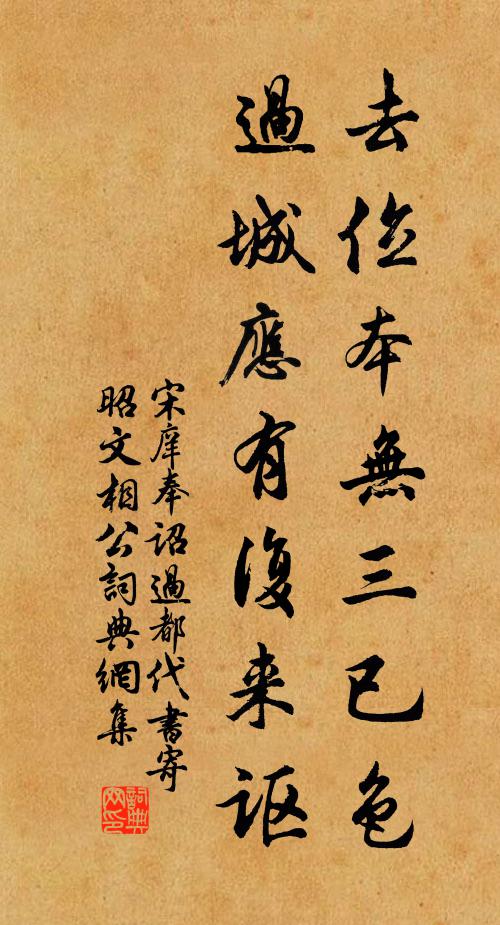 去位本無三已色
過城應有復来謳
宋庠奉詔過都代書寄
昭文相公詞典網集
詞典網印